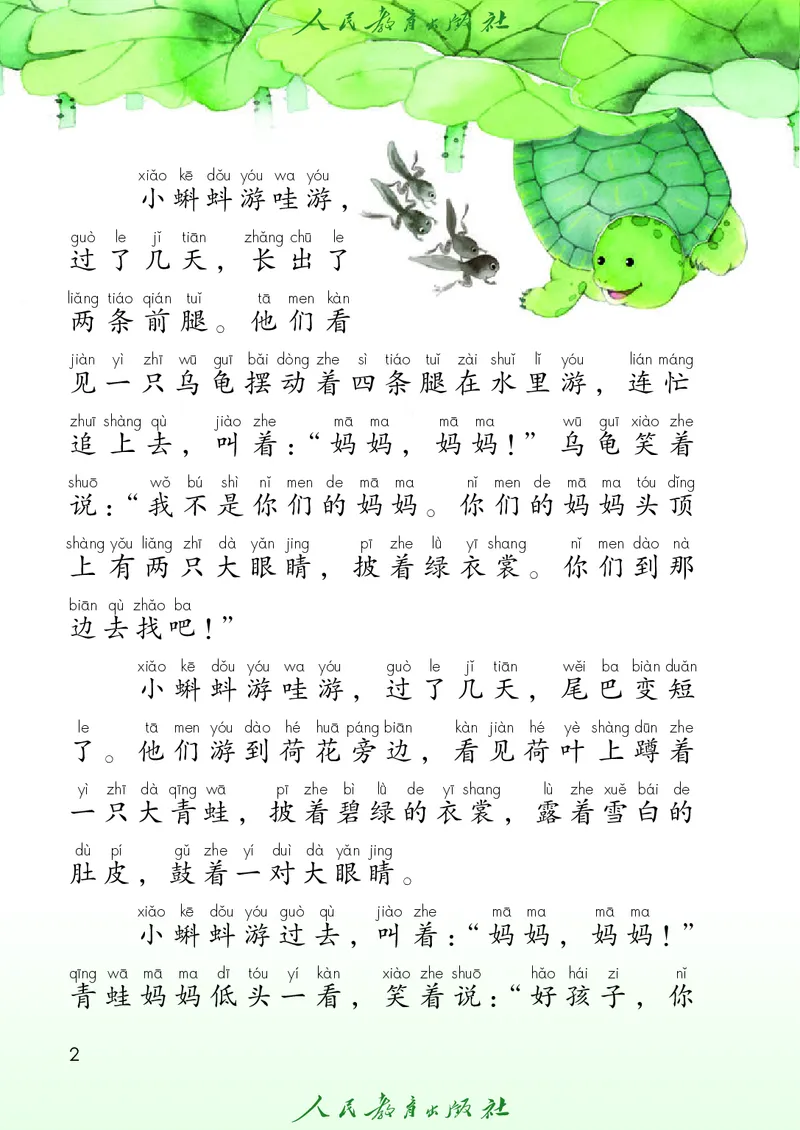 人民教育出版社
xiǎo kē dǒu yóu wa yóu
小蝌蚪游哇游，
guò le jǐ tiān zhǎng chū le
过了几天，长出了
liǎng tiáo qián tuǐ tā men kàn
两条前腿。他们看
jiàn yì zhī wū guī bǎi dòng zhe sì tiáo tuǐ zài shuǐ lǐ yóu lián máng
见一只乌龟摆动着四条腿在水里游，连忙
zhuī shàng qù jiào zhe mā ma mā ma wū guī xiào zhe
追上去，叫着：“妈妈，妈妈！”乌龟笑着
shuō wǒ bú shì nǐ men de mā ma nǐ men de mā ma tóu dǐng
说：“我不是你们的妈妈。你们的妈妈头顶
shàng yǒu liǎng zhī dà yǎn jing pī zhe lǜ yī shang nǐ men dào nà
上有两只大眼睛，披着绿衣裳。你们到那
biān qù zhǎo ba
边去找吧！”
xiǎo kē dǒu yóu wa yóu guò le jǐ tiān wěi ba biàn duǎn
小蝌蚪游哇游，过了几天，尾巴变短
le tā men yóu dào hé huā páng biān kàn jiàn hé yè shàng dūn zhe
了。他们游到荷花旁边，看见荷叶上蹲着
yì zhī dà qīng wā pī zhe bì lǜ de yī shang lù zhe xuě bái de
一只大青蛙，披着碧绿的衣裳，露着雪白的
dù pí gǔ zhe yí duì dà yǎn jing
肚皮，鼓着一对大眼睛。
xiǎo kē dǒu yóu guò qù jiào zhe mā ma mā ma
小蝌蚪游过去，叫着：“妈妈，妈妈！”
qīng wā mā ma dī tóu yí kàn xiào zhe shuō hǎo hái zi nǐ
青蛙妈妈低头一看，笑着说：“好孩子，你
2
人民教育出版社